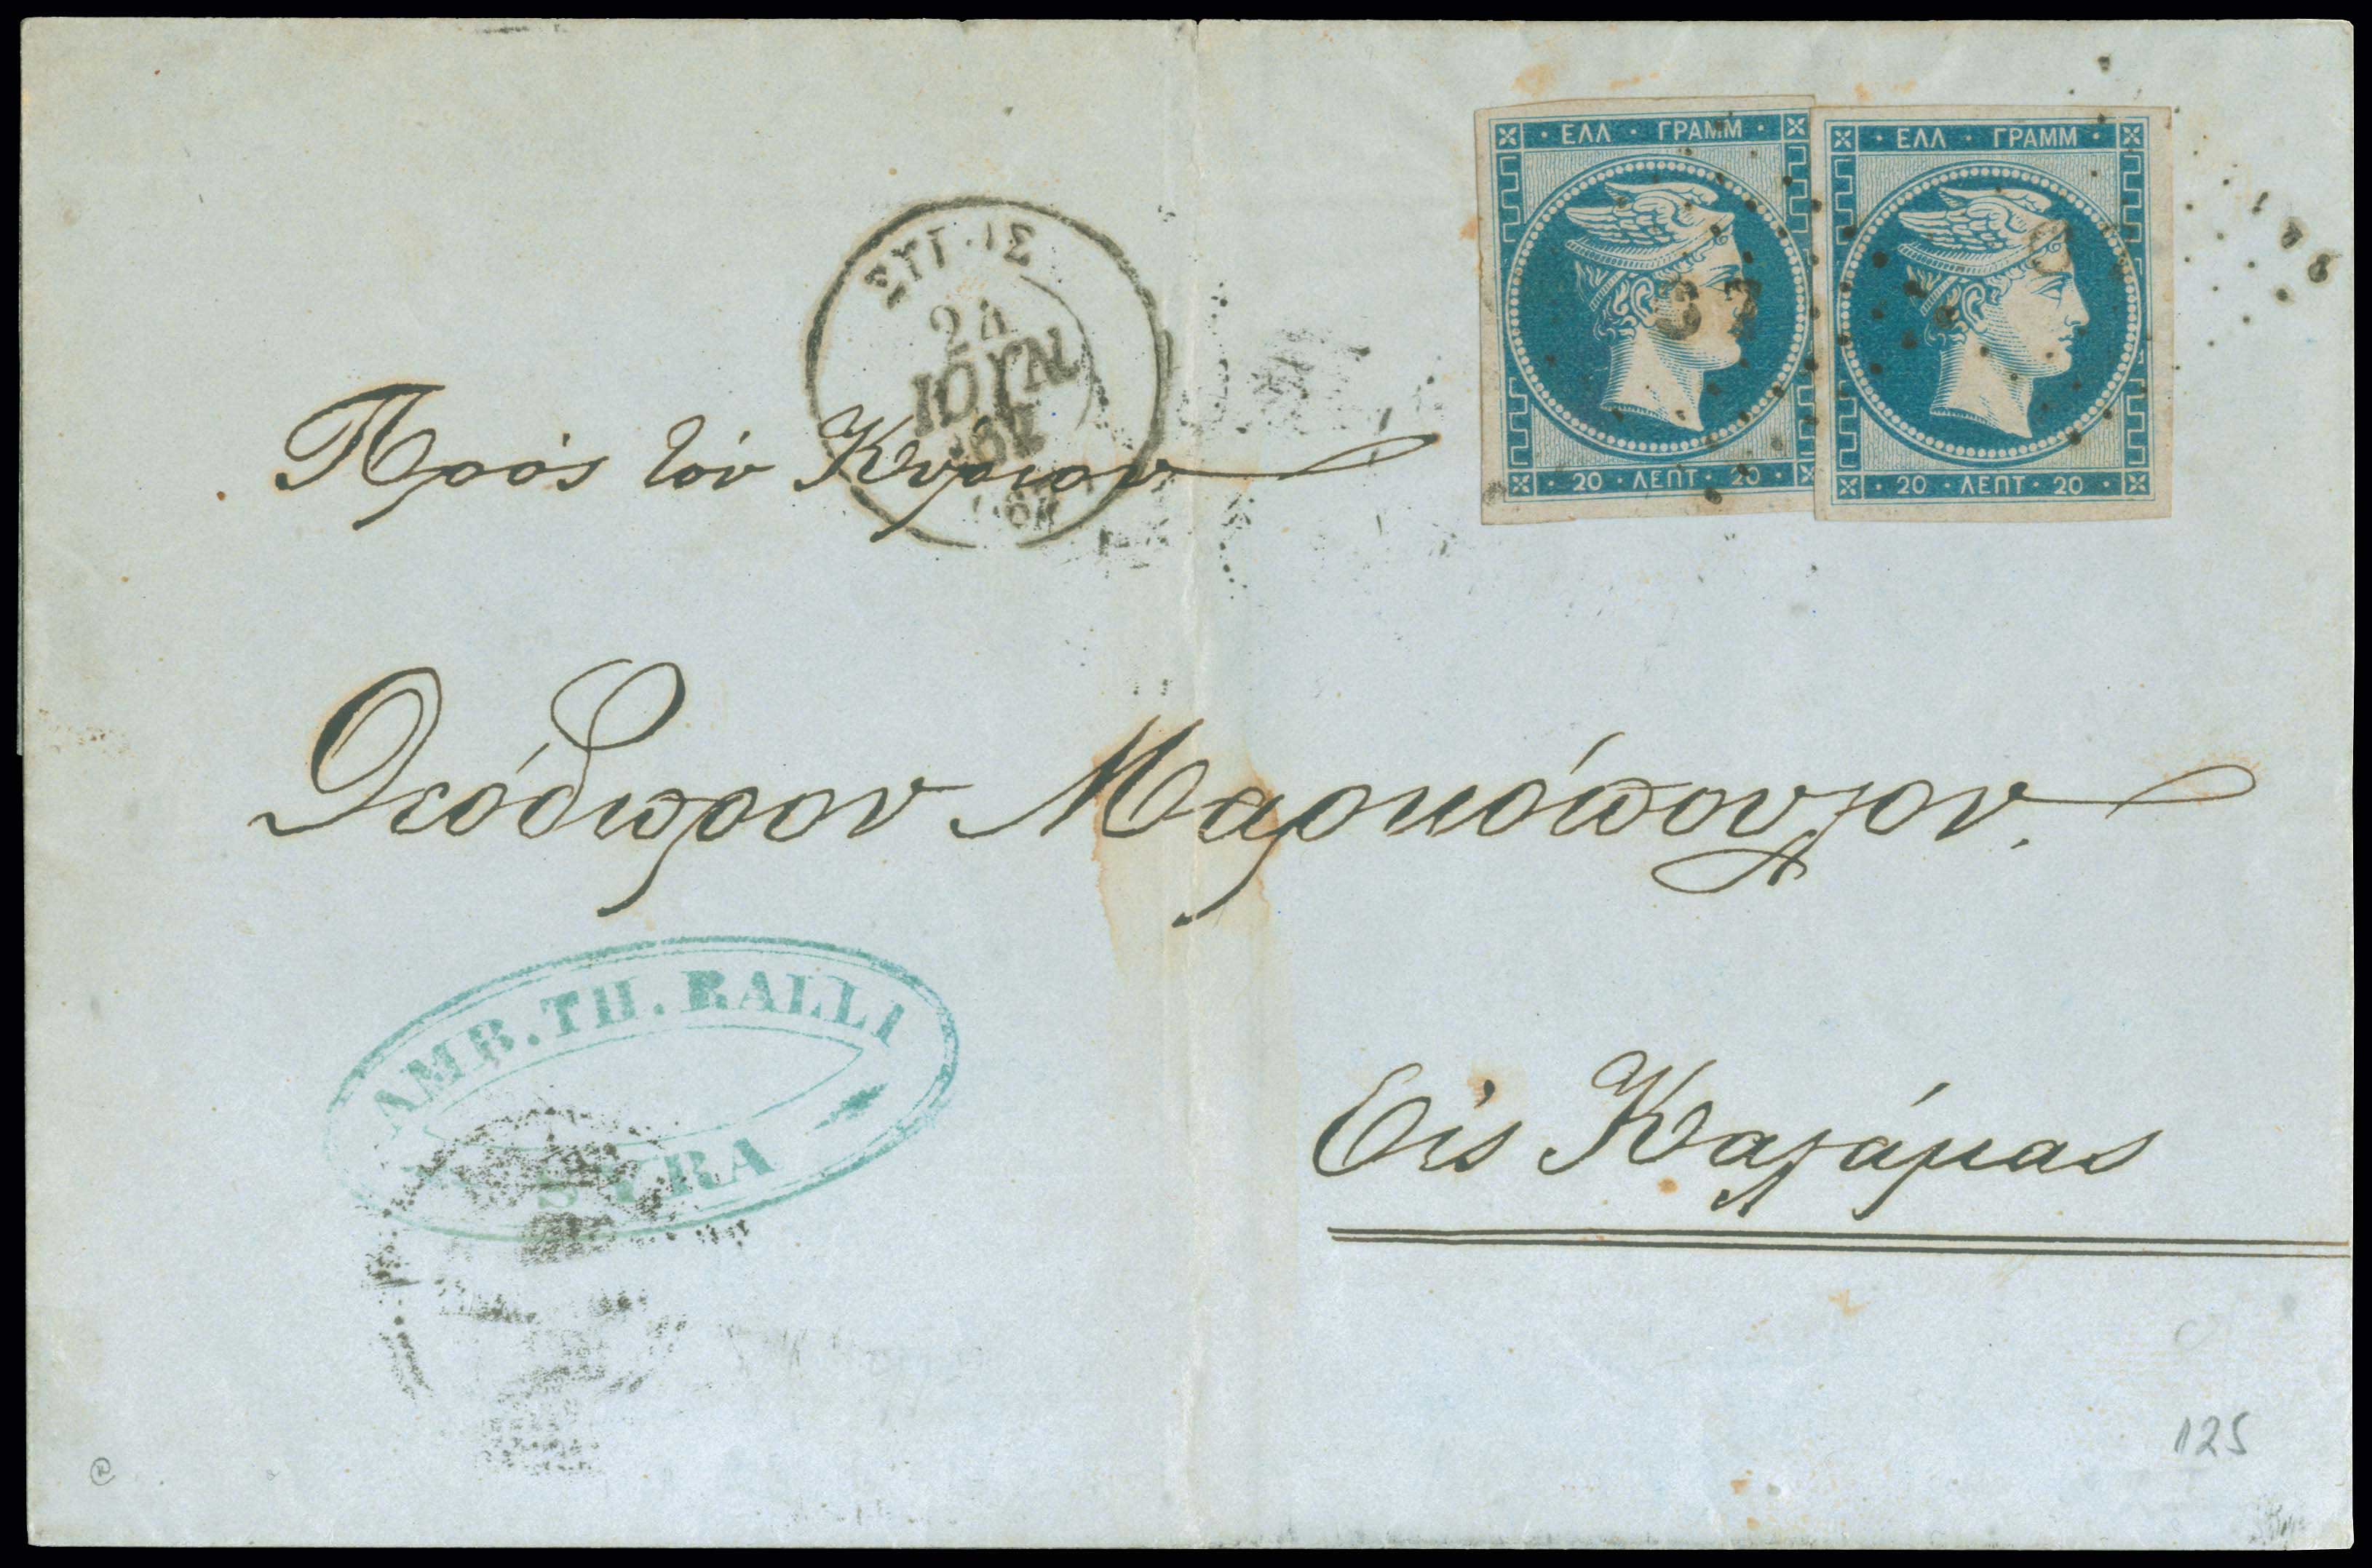 · ΕΛΛ · ΓΡΑΜΜ ·
· 20 · ΛΕΠΤ · 20 ·
· ΕΛΛ · ΓΡΑΜΜ ·
· 20 · ΛΕΠΤ · 20 ·
24
ΙΟΥΝ
Πρὸς τὸν Κύριον
Θεόδωρον Μαρκόπουλον.
AMB. TH. RALLI
SYRA
Εἰς Καλάμας
125